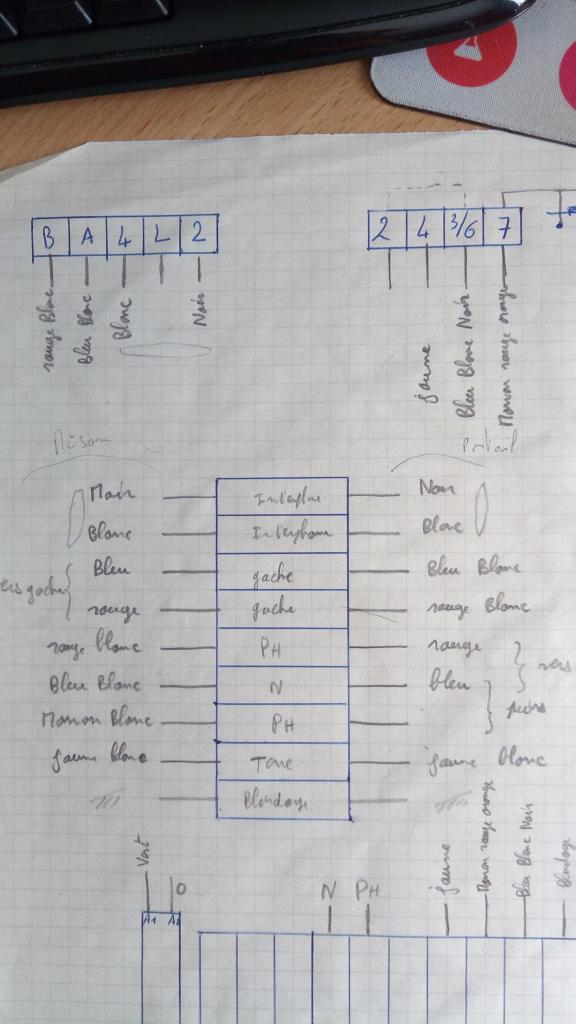 B A 4 L 2
rouge Blanc
Bleu Blanc
Blanc
Noir
2 4 3/6 7
jaune
Bleu Blanc Noir
Marron rouge orange
Maison
Portail
Noir Interphone Noir
Blanc Interphone Blanc
Bleu gache Bleu Blanc
rouge gache rouge Blanc
vers gache
rouge blanc PH rouge
Bleu Blanc N bleu
vers
Marron Blanc PH
jaune blanc Terre jaune blanc
Blindage
Vert
0
A1 A2
N PH
jaune
Marron rouge orange
Bleu Blanc Noir
Blindage